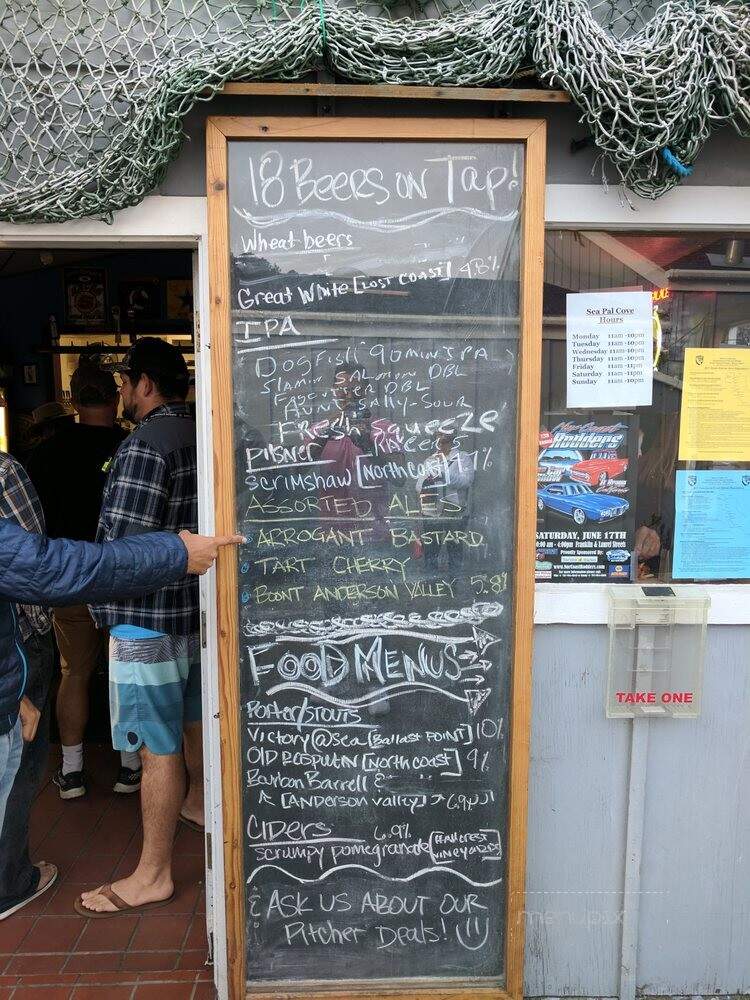 18 BEERS ON TAP!
Wheat beers
Great White [LOST COAST] 4.8%
IPA
Dogfish 90 min IPA
Slammin Salmon DBL
DBL
Aunt Sally-Sour
Fresh Squeeze
PILSNER
Scrimshaw [North Coast] 4.7%
ASSORTED ALES
ARROGANT BASTARD
TART CHERRY
BOONT ANDERSON VALLEY 5.8%
FOOD MENUS
Porter/STOUTS
Victory @ Sea [BALLAST POINT] 10%
OLD RASPUTIN [North Coast] 9%
Bourbon Barrell
[ANDERSON Valley] 6.9%
CIDERS 6.9%
Scrumpy pomegranate
& ASK US ABOUT OUR
Pitcher DEALS!
Sea Pal Cove
Hours
Monday 11am -10pm
Tuesday 11am -10pm
Wednesday 11am -10pm
Thursday 11am -10pm
Friday 11am -11pm
Saturday 11am -11pm
Sunday 11am -10pm
Nor Coast
Rodders
SATURDAY, JUNE 17TH
Franklin & Laurel Streets
Proudly Sponsored By:
www.NorCoastRodders.com
NAPA
TAKE ONE
menupix